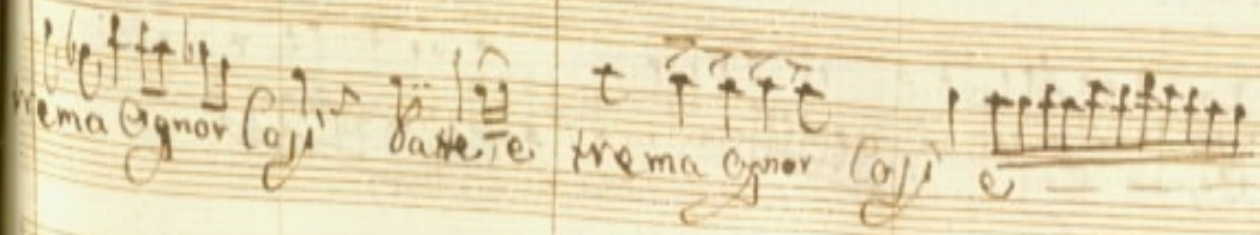 trema ognor Così Battete trema ognor Così e